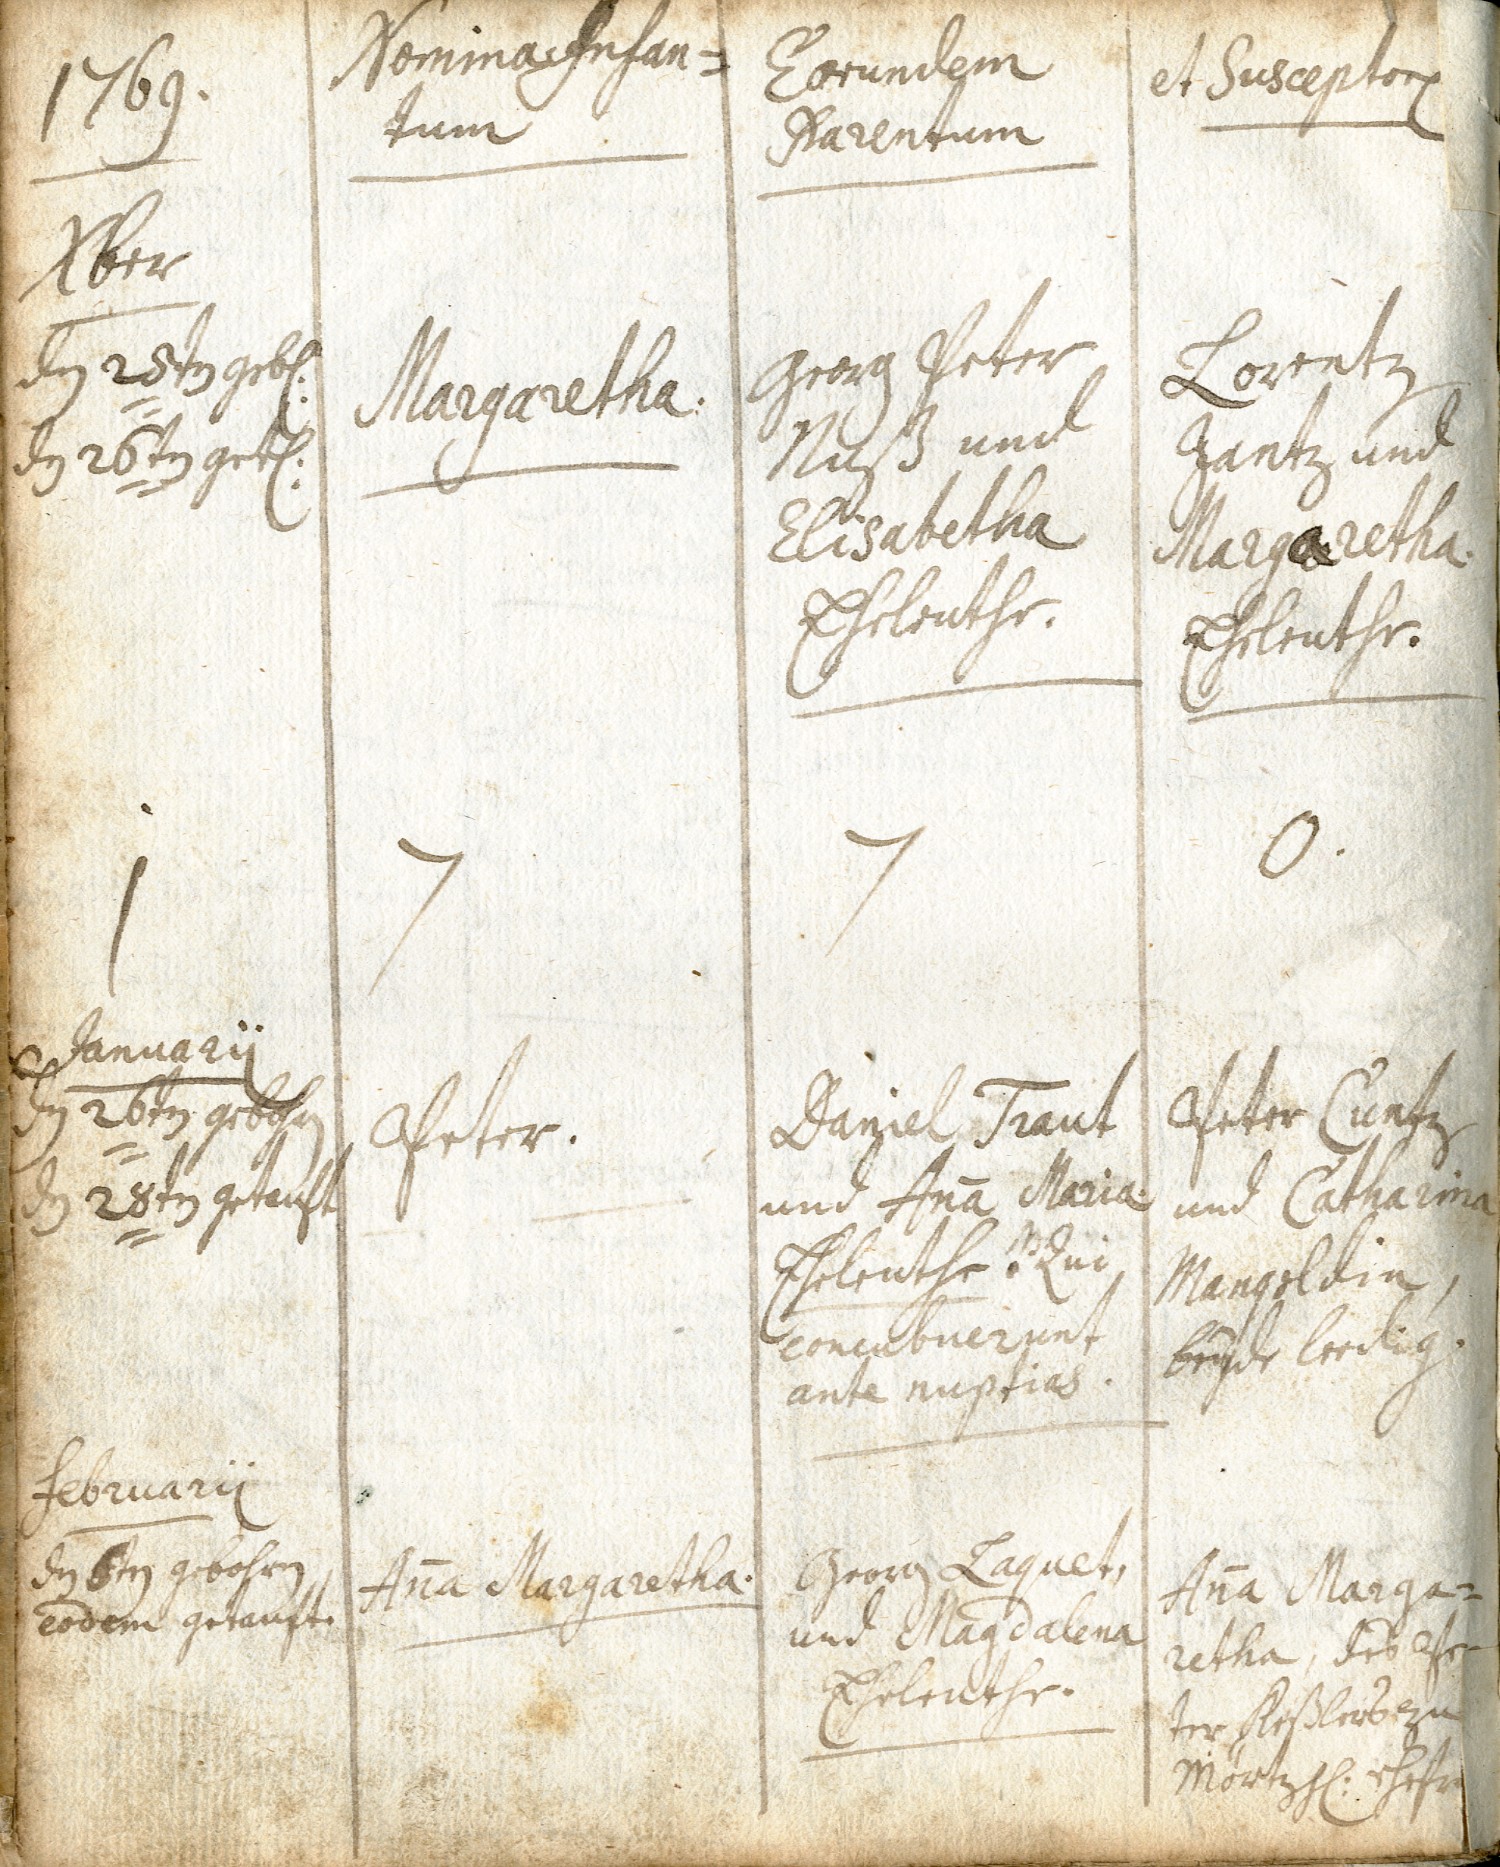 1769.
Nomina Infan=
tum
Eorundem
Parentum
et Susceptorꝝ
Xber
den 25ten geb:
den 26ten get:
Margaretha.
Georg Peter
Nuß und
Elisabetha
Eheleuthe.
Lorentz
Jantz und
Margaretha.
Eheleuthe.
1 7 7 0.
Januarij
den 26ten gebohrn
den 28ten getauft
Peter.
Daniel Traut
und Aña Maria
Eheleuthe Qui
concubuerunt
ante nuptias.
Peter Cuntz
und Catharina
Mangoldin,
beyde leedig.
Februarij
den 6ten gebohrn
eodem getauft.
Aña Margaretha.
Georg Laquet,
und Magdalena
Eheleuthe.
Aña Marga=
retha, des Pe-
ter Keßlers zu
Mörtzh: Ehefr